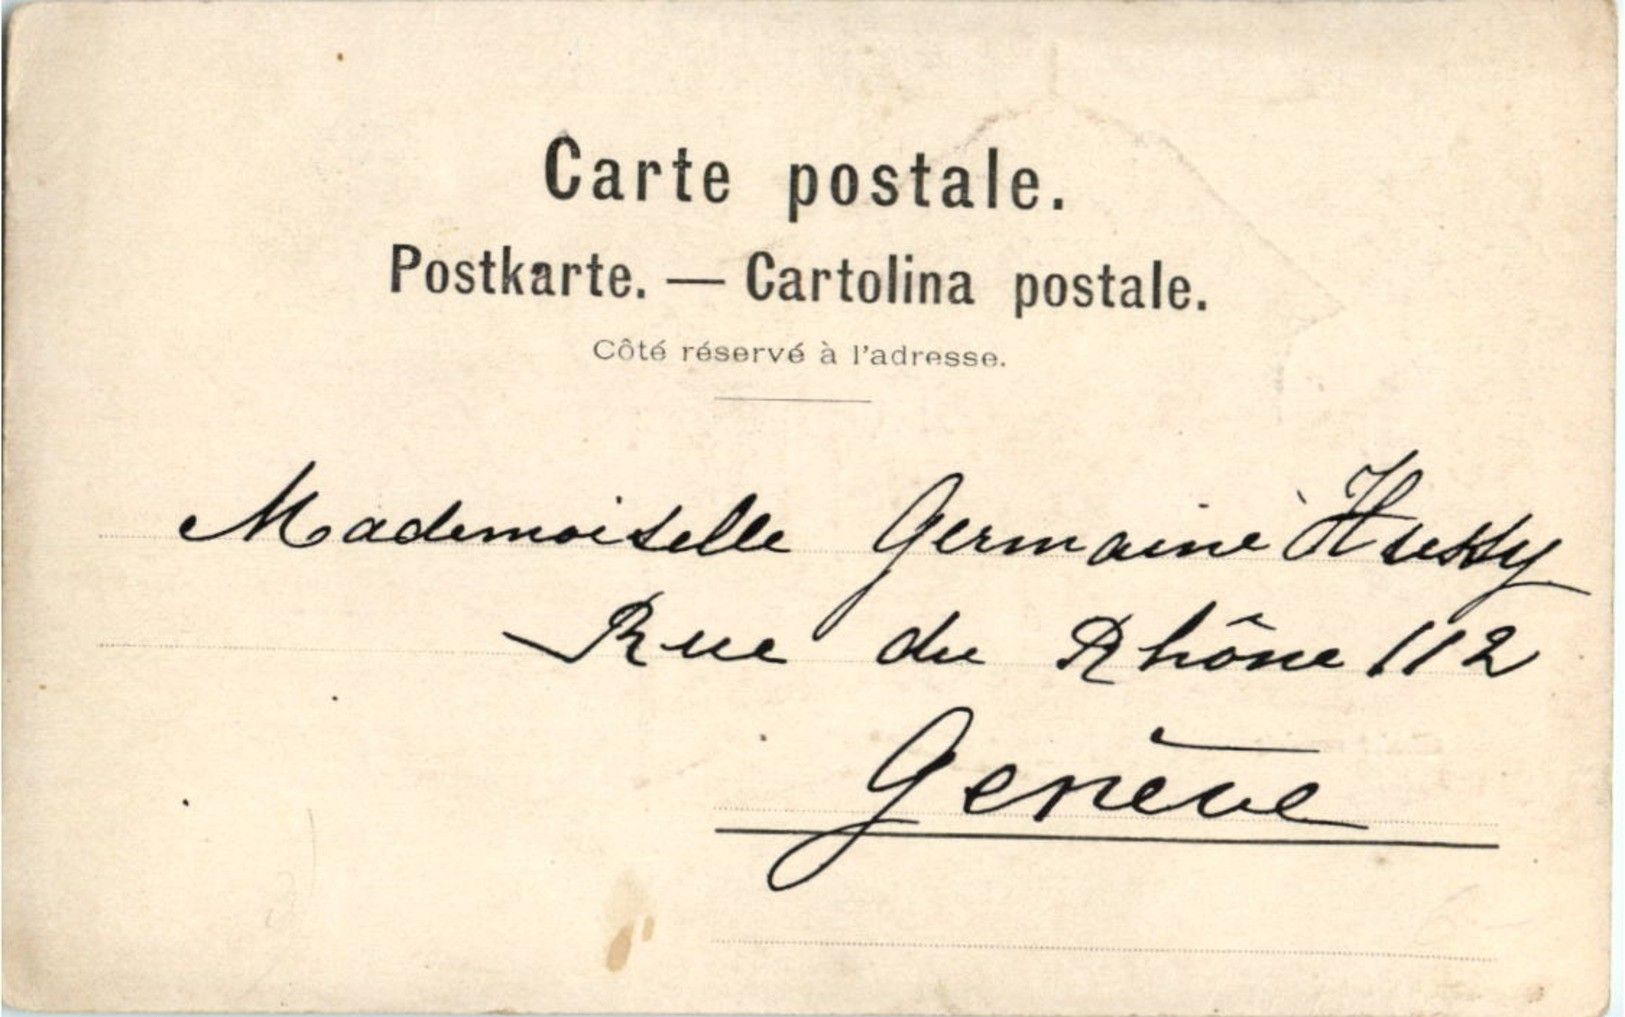 Carte postale.
Postkarte. — Cartolina postale.
Côté réservé à l'adresse.
Mademoiselle Germaine Hussy
Rue du Rhône 112
Genève